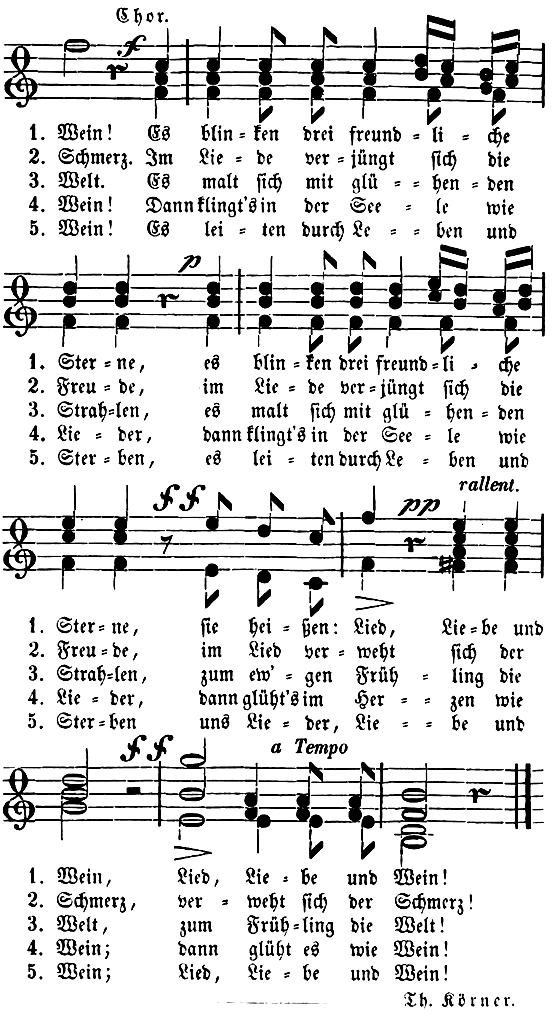 Chor.
f
1. Wein! Es blin - ken drei freund - li - che
2. Schmerz. Im Lie - de ver - jüngt sich die
3. Welt. Es malt sich mit glü - - hen - den
4. Wein! Dann klingt's in der See - le wie
5. Wein! Es lei - ten durch Le - - ben und
p
1. Ster - ne, es blin - ken drei freund - li - che
2. Freu - de, im Lie - de ver - jüngt sich die
3. Strah - len, es malt sich mit glü - hen - den
4. Lie - der, dann klingt's in der See - le wie
5. Ster - ben, es lei - ten durch Le - ben und
rallent.
ff pp
1. Ster - ne, sie hei - ßen: Lied, Lie - be und
2. Freu - de, im Lied ver - weht sich der
3. Strah - len, zum ew' - gen Früh - ling die
4. Lie - der, dann glüht's im Her - zen wie
5. Ster - ben uns Lie - der, Lie - be und
ff a Tempo
1. Wein, Lied, Lie - be und Wein!
2. Schmerz, ver - weht sich der Schmerz!
3. Welt, zum Früh - ling die Welt!
4. Wein; dann glüht es wie Wein!
5. Wein; Lied, Lie - be und Wein!
Th. Körner.